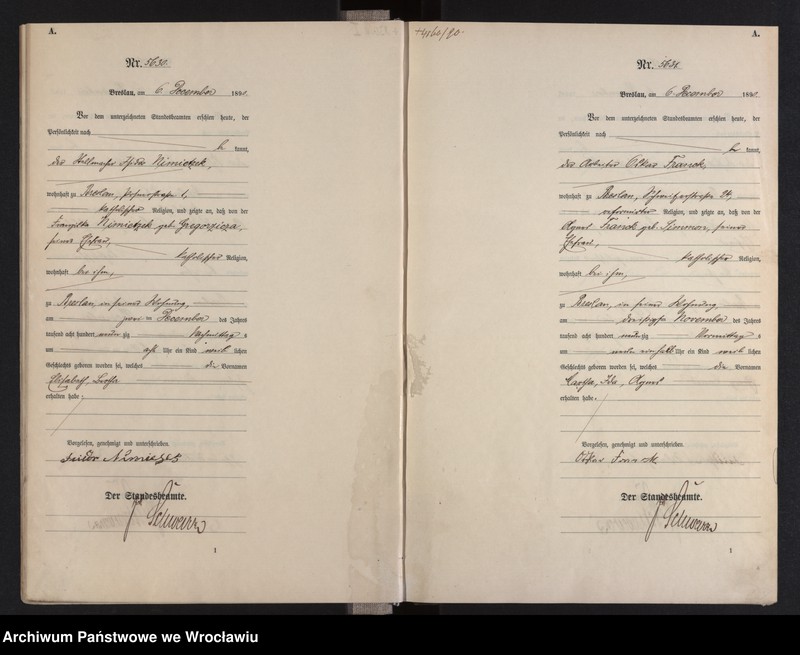 A.
Nr. 5630.
Breslau, am 6. December 1890.
Vor dem unterzeichneten Standesbeamten erschien heute, der
Persönlichkeit nach
kannt,
der Isidor Nimietzek,
wohnhaft zu Breslau, 1,
katholischer Religion, und zeigte an, daß von der
Nimietzek geb.
seiner Ehefrau,
katholischer Religion,
wohnhaft bei ihm,
zu Breslau in seiner Wohnung,
am zwei ten December des Jahres
tausend acht hundert neun zig Nachmittag s
um acht Uhr ein Kind weib lichen
Geschlechts geboren worden sei, welches die Vornamen
Elisabeth,
erhalten habe.
Vorgelesen, genehmigt und unterschrieben.
Der Standesbeamte.
1
A.
Nr. 5631.
Breslau, am 6. December 1890.
Vor dem unterzeichneten Standesbeamten erschien heute, der
Persönlichkeit nach
kannt,
der Arbeiter Oskar Franck,
wohnhaft zu Breslau, 24,
reformirter Religion, und zeigte an, daß von der
Agnes Franck geb. seiner
Ehefrau,
katholischer Religion,
wohnhaft bei ihm,
zu Breslau, in seiner Wohnung
am dreißigsten November des Jahres
tausend acht hundert neunzig Vormittag s
um Uhr ein Kind weib lichen
Geschlechts geboren worden sei, welches die Vornamen
Ida, Agnes
erhalten habe.
Vorgelesen, genehmigt und unterschrieben.
Oskar Franck
Der Standesbeamte.
1
Archiwum Państwowe we Wrocławiu